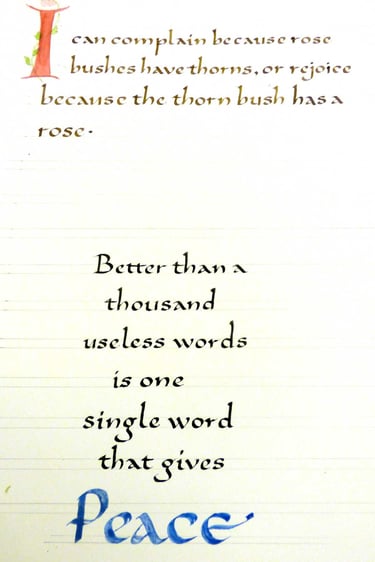 I can complain because rose
bushes have thorns, or rejoice
because the thorn bush has a
rose.
Better than a
thousand
useless words
is one
single word
that gives
Peace